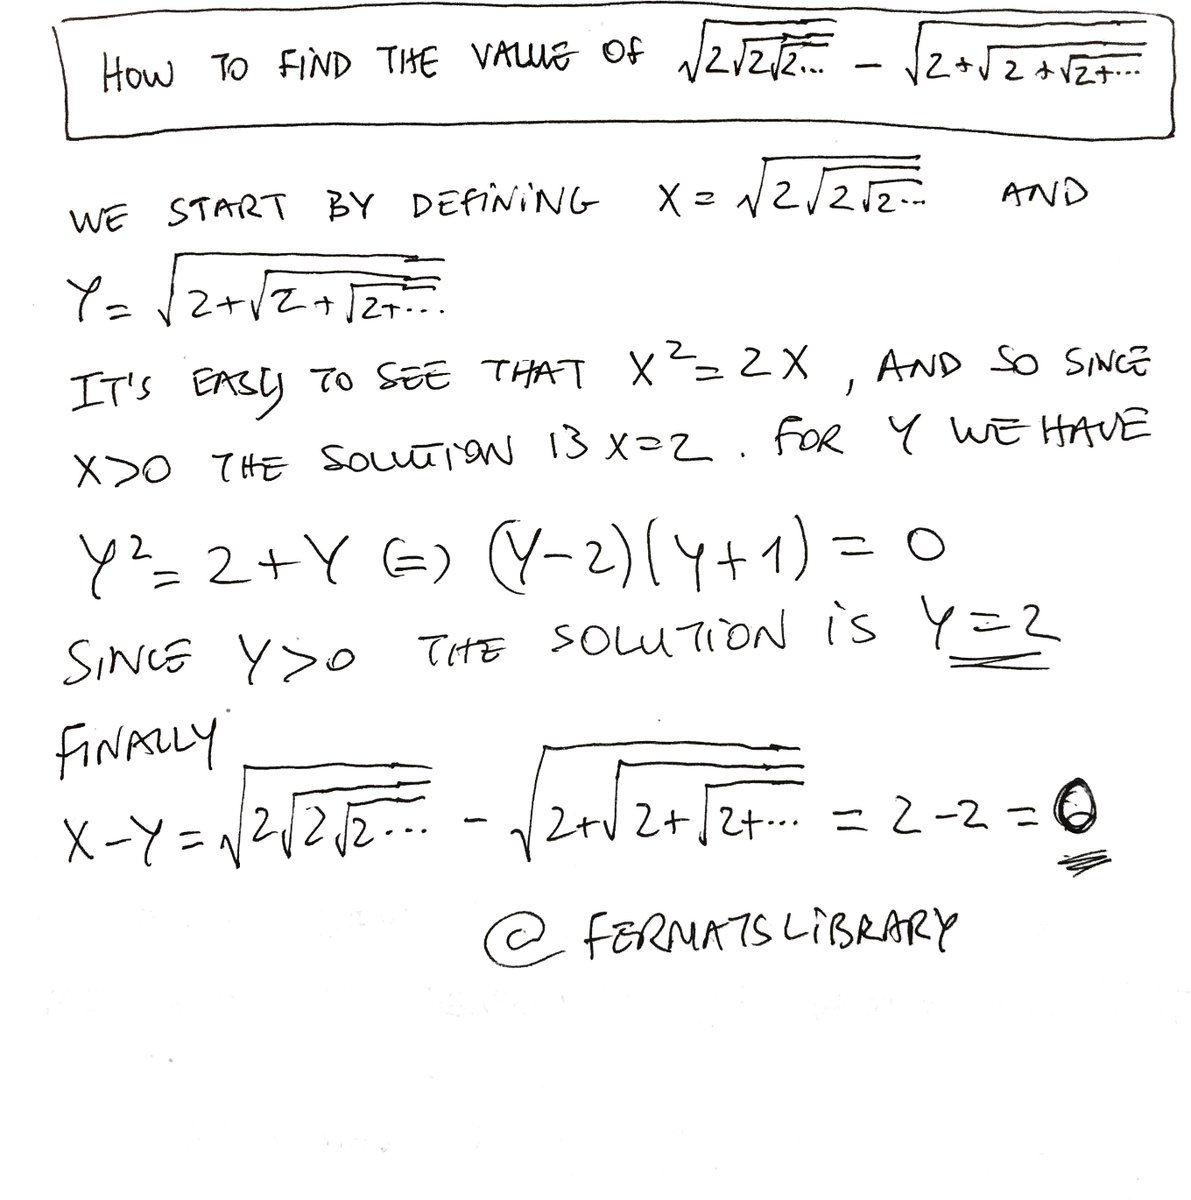 HOW TO FIND THE VALUE OF √2√2√2... − √2+√2+√2+...
WE START BY DEFINING X = √2√2√2... AND
Y = √2+√2+√2+...
IT'S EASY TO SEE THAT X² = 2X , AND SO SINCE
X>0 THE SOLUTION IS X=2 . FOR Y WE HAVE
Y² = 2+Y (=) (Y−2)(Y+1) = 0
SINCE Y>0 THE SOLUTION IS Y=2
FINALLY
X−Y = √2√2√2... − √2+√2+√2+... = 2−2 = 0
@FERMATSLIBRARY